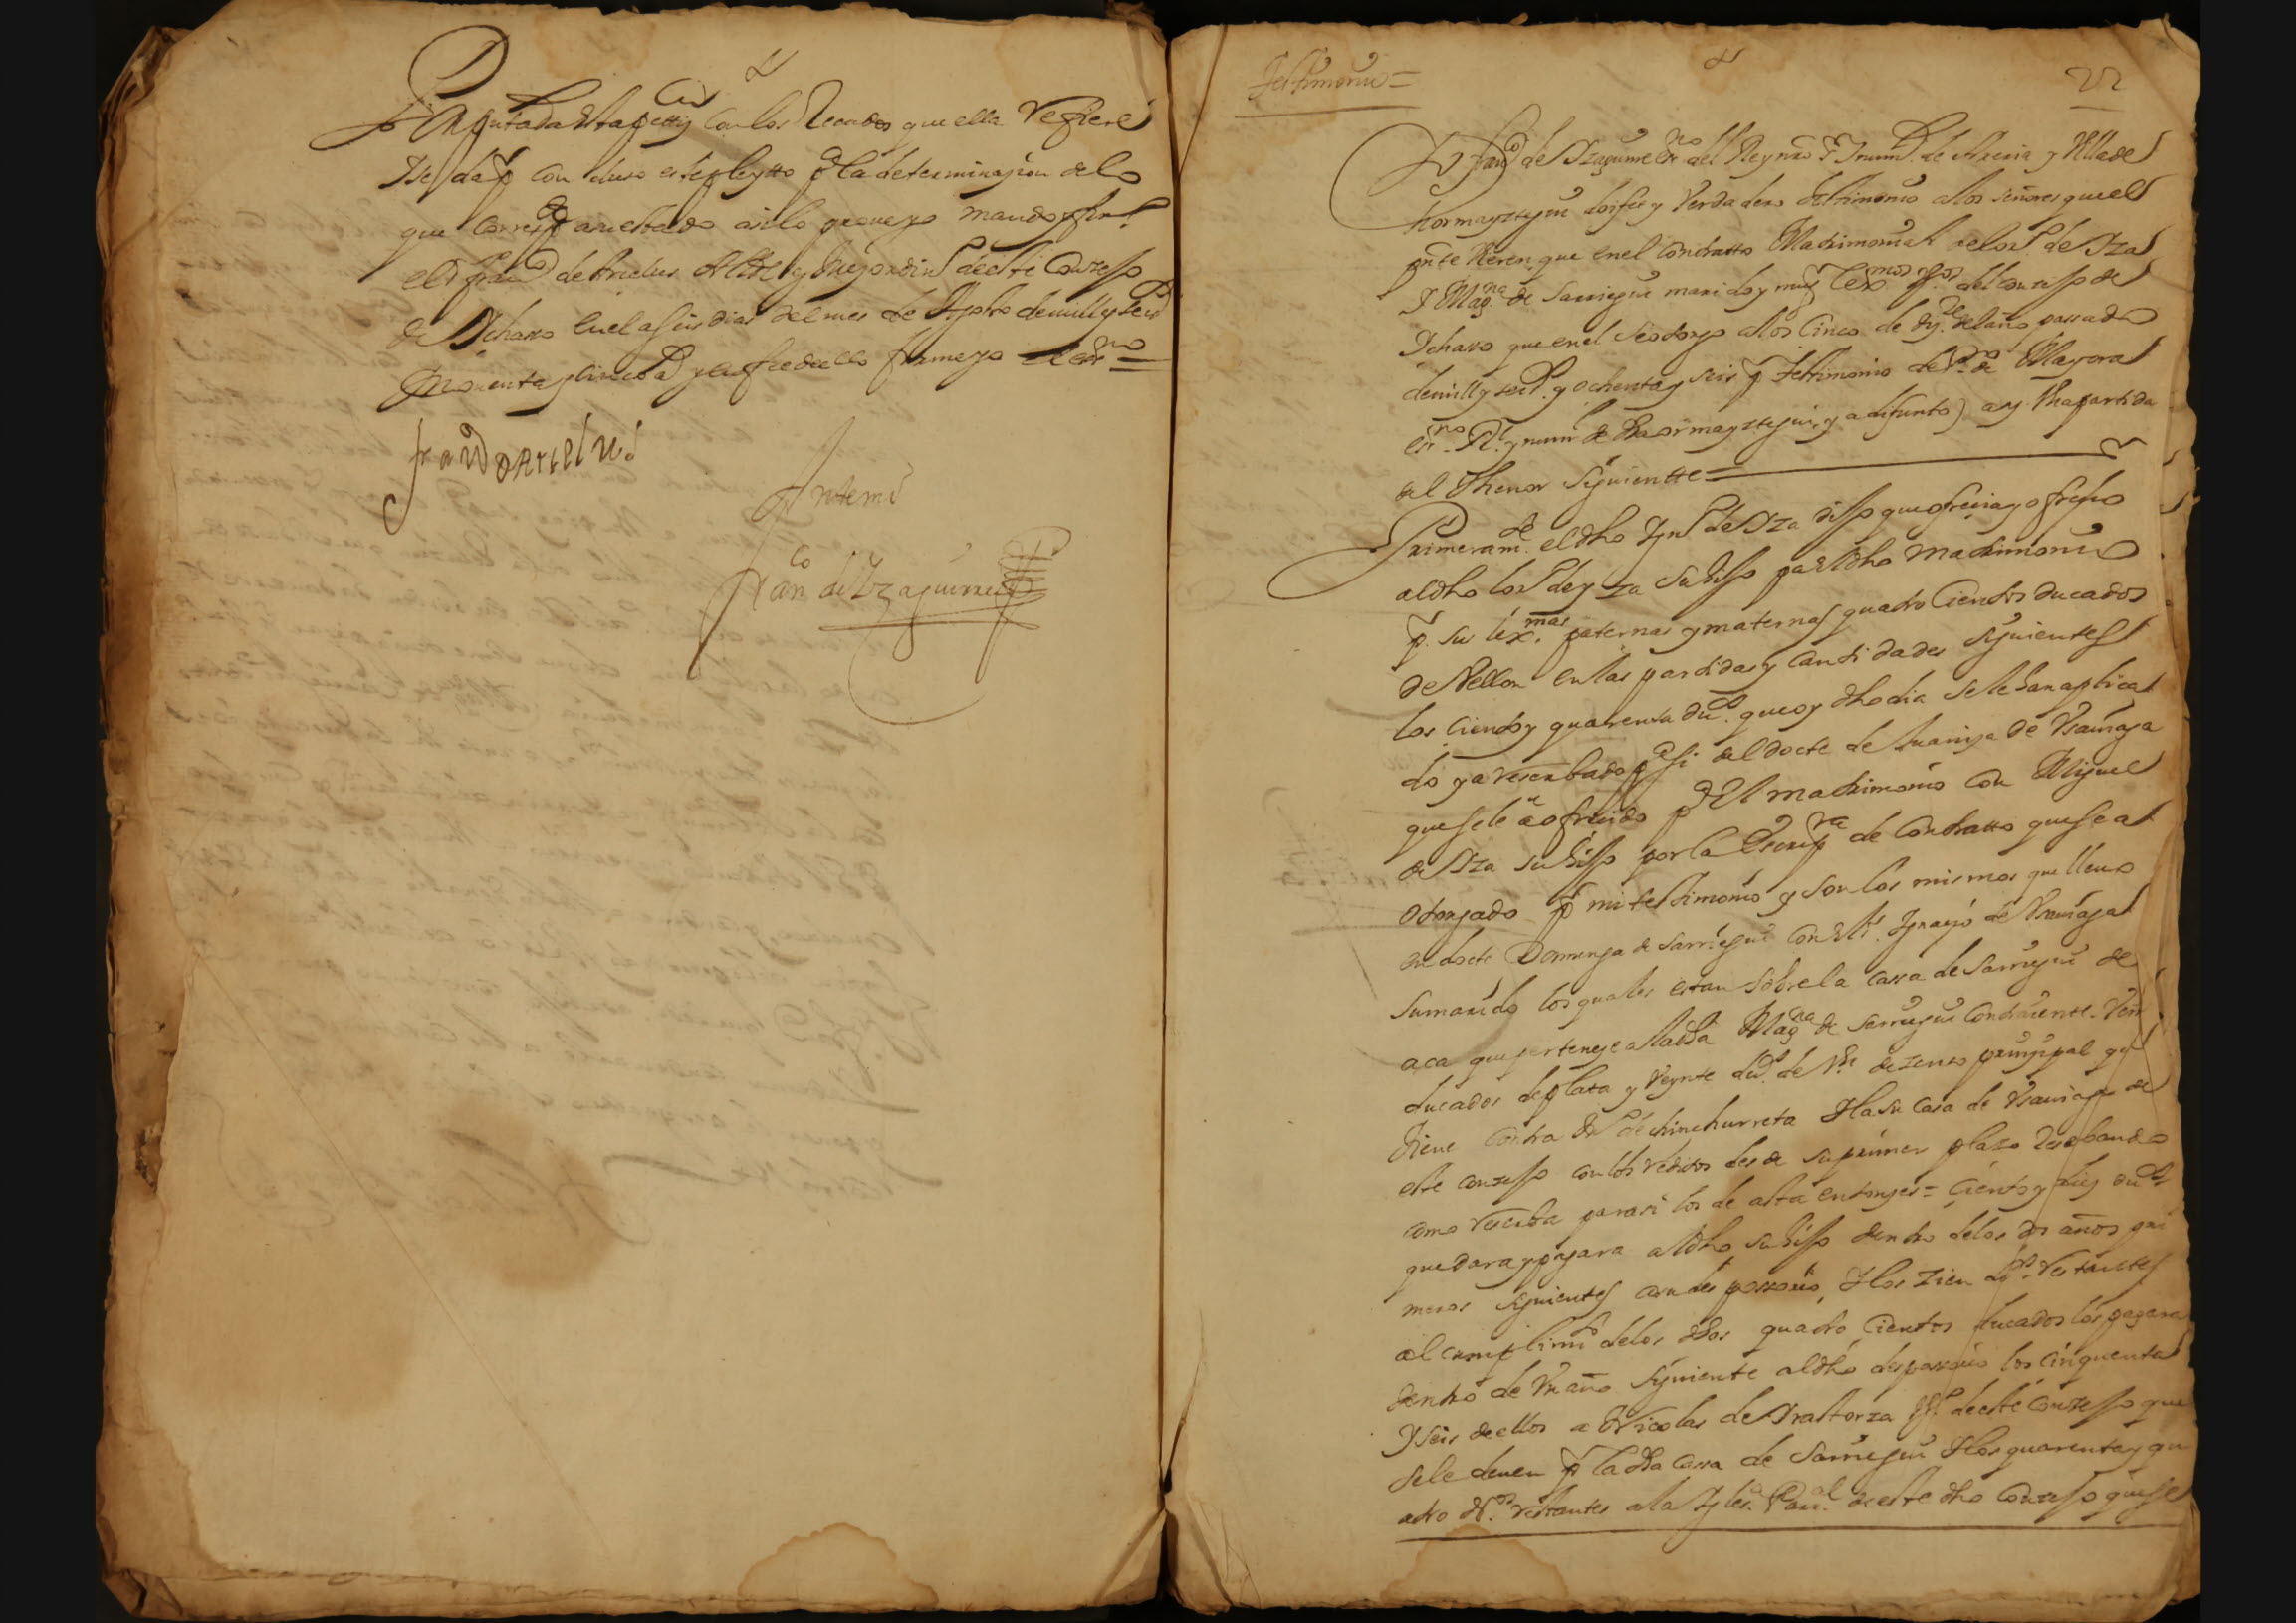 Por Presentada esta petticion con los Recados que ella Refiere
Y se da por concluso este pleytto para la determinazion de lo
que corresponde en estado asi lo proveyo mando y firmo
el Sr franco de Arielus Allde y Juez ordino de este Conzejo
de Ichaso en el a seis dias del mes de Agosto de mill y seis
y noventa y cinco as y en fee de ello firme yo el essno =
franco de Arielus
Ante mi
Franco de Yzaguirre
Testimonio =
22
Yo franco de Yzaguirre essno del Rey nro Sr y Numl de Areria y Villa de
hormayztegui doi fee y Verdadero testimonio a los señores que el
pnte Veren que en el Contratto Matrimonial de los de Yza
Y Magna de Sarriegui marido y mugr lexmos vos del conzejo de
Ychaso que en el se otorgo a los Cinco de dize del año passado
de mill y seisos y ochenta y seis por testimonio de Po de Mayora
essno Rl y numl de hormayztegui, ya difunto) ay Vna partida
del Thenor siguientte =
Primeramte el dho Juan de Yza dijo que ofrecia y ofrecio
al dho de Yza su hijo para el dho Matrimonio
por sus lexmas paternas y maternas quatro Cientos ducados
de Vellon en las partidas y cantidades siguientes
los Ciento y quarenta dus que oy dho dia se le han aplica
do y a reserbado para si del docte de de Vsarraga
que se le a ofrecido para el matrimonio con Miguel
de Yza su hijo por la Escripra de Contratto que se a
otorgado por mi testimonio y son los mismos que lleuo
en docte Dominga de Sarriegui con el Ignacio de Vsarraga
su marido los quales estan sobre la cassa de Sarriegui de
aca que perteneze a la dha Magna de Sarriegui Contrayente. Vein
ducados de plata y Veynte dus de Vn de zenso prinzipal que
tiene Contra de chinchurreta Y la su Casa de Vsarraga de
este conzejo con los reditos desde su primer plazo reserbando
como reserba para si los de asta entonzes = Ciento y diez dus
que dara y pagara al dho su hijo dentro de los dos años pri
meros siguientes a su desposorio, Y los Zien dus restantes
al cumplimto de los dhos quatro Cientos ducados los pagara
dentro de Vn año siguiente al dho desposorio los cinquenta
Y seis de ellos a Nicolas de Yrastorza Vo de este Conzejo que
se le deuen por la dha Cassa de Sarriegui Y los quarenta y qu
atro dus restantes a la Yglesia Parral de este dho Conzejo que se